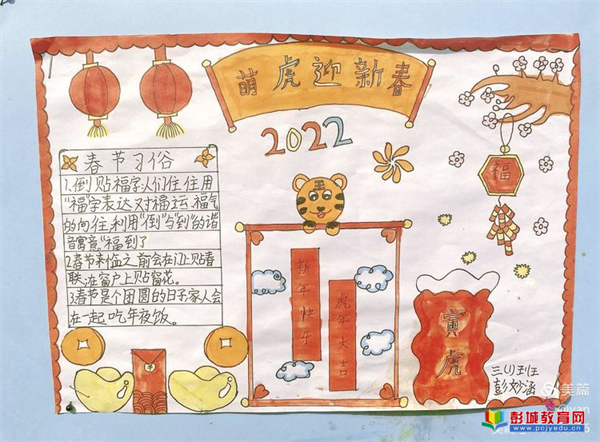 萌虎迎新春
2022
福
春节习俗
1.倒贴福字人们往往用
"福"字表达对福运、福气
的向往,利用"倒"与"到"的谐
音寓意"福到了
2.春节来临之前会在门上贴春
联,在窗户上贴窗花。
3.春节是个团圆的日子家人会
在一起吃年夜饭。
新年快乐
虎年大吉
寅虎
三(1)班
彭妙涵
美篇
彭城教育网
www.pcjyedu.cn